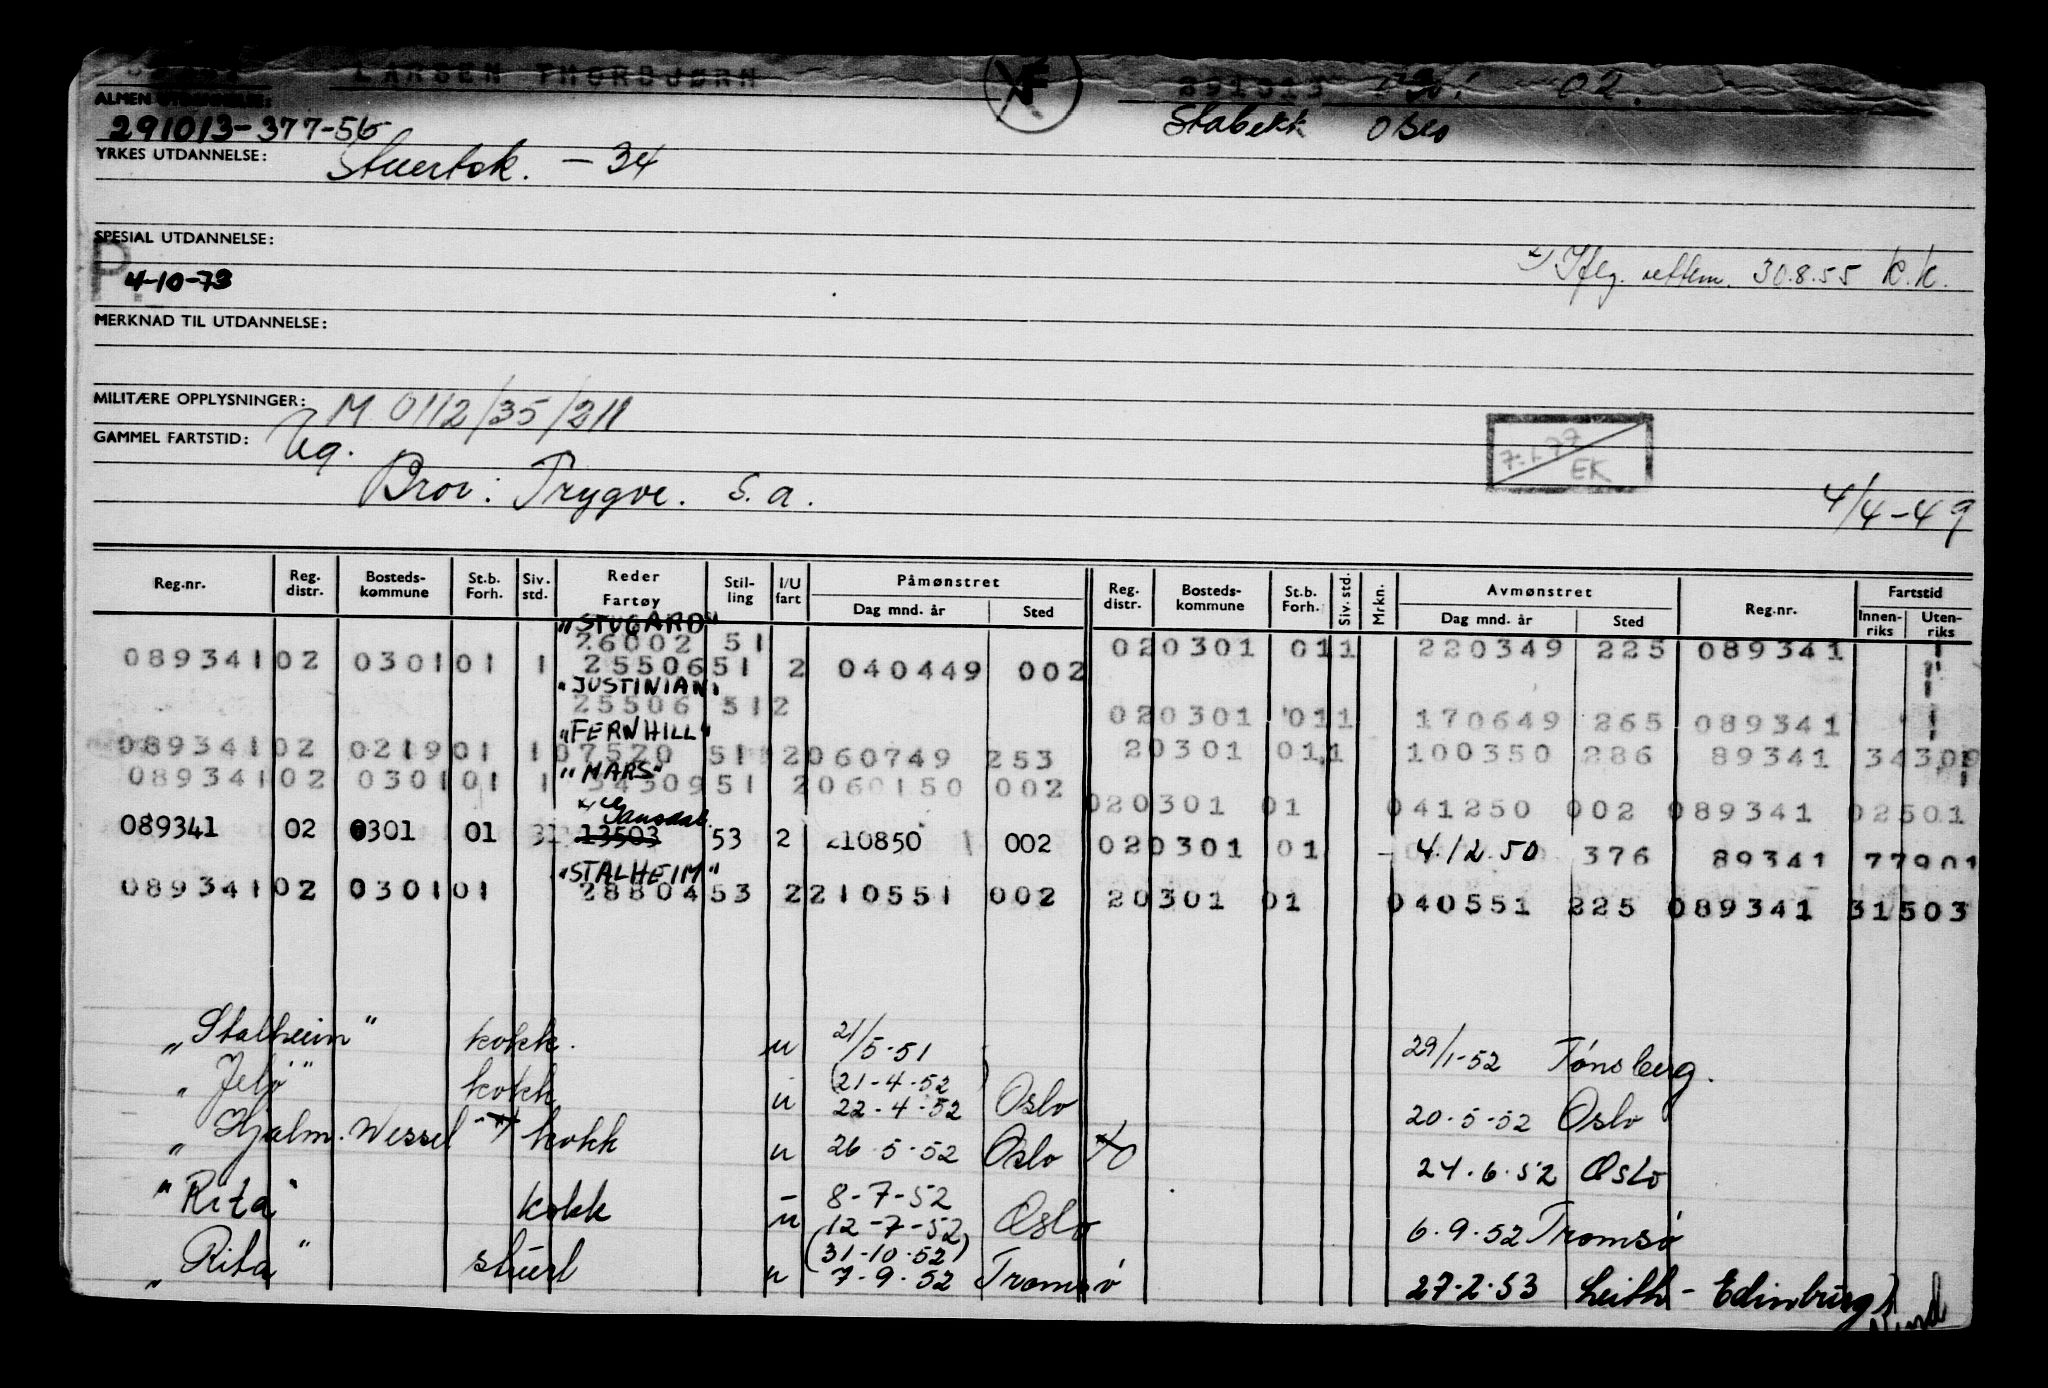 LARSEN THORBJØRN F 291013 02.
ALMEN UTDANNELSE: Stabekk Oslo
291013-377-56
YRKES UTDANNELSE: Stuertsk. - 34
SPESIAL UTDANNELSE:
P. 4-10-73 x) Iflg. rettem. 30.8.55 K.K.
MERKNAD TIL UTDANNELSE:
MILITÆRE OPPLYSNINGER: M 0112/35/211
7.1.77 EK
GAMMEL FARTSTID: Ug.
Bror: Trygve. s.a. 4/4-49
Reg.nr. Reg. distr. Bosteds-kommune St.b. Forh. Siv. std. Reder Fartøy Stil-ling I/U fart Påmønstret Dag mnd. år Sted Reg. distr. Bosteds-kommune St.b. Forh. Siv. std. Mrkn. Avmønstret Dag mnd. år Sted Reg.nr. Fartstid Innen-riks Uten-riks
"STUGARD"
26002 51 020301 011 220349 225 089341
089341 02 0301 01 1 25506 51 2 040449 002
"JUSTINIAN"
25506 51 2 020301 011 170649 265 089341
"FERNHILL"
089341 02 0219 01 1 07520 51 2 060749 253 20301 011 100350 286 89341 34309
"MARS"
089341 02 0301 01 1 34309 51 2 060150 002 020301 01 041250 002 089341 02501
089341 02 0301 01 13503 53 2 210850 002 020301 01 - 4.12.50 376 89341 77901
"STALHEIM"
089341 02 0301 01 28804 53 2 210551 002 20301 01 040551 225 089341 31503
"Stalheim" kokk. u 21/5-51 29/1-52 Tønsberg.
"Jelø" kokk u (21-4-52) 22-4-52 Oslo 20.5-52 Oslo
"Hjalm. Wessel" kokk u 26.5-52 Oslo 24.6.52 Oslo
"Rita" kokk u 8-7-52 (12-7-52) Oslo 6.9.52 Tromsø
"Rita" stuert u (31-10-52) 7.9.52 Tromsø 27.2.53 Leith - Edinburgh